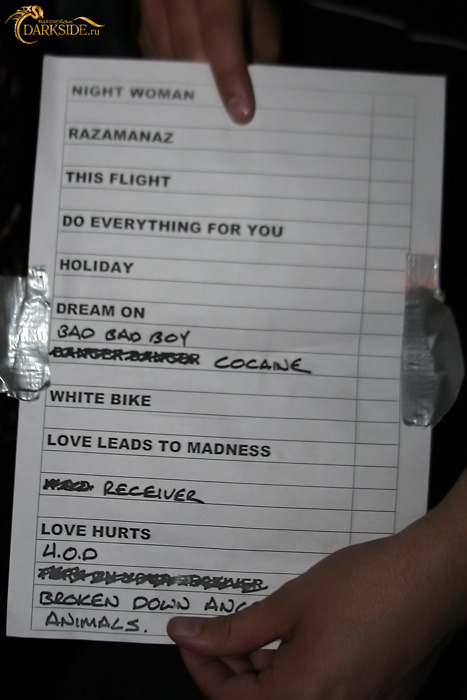 DARKSIDE.ru
NIGHT WOMAN
RAZAMANAZ
THIS FLIGHT
DO EVERYTHING FOR YOU
HOLIDAY
DREAM ON
BAD BAD BOY
DANGER DANGER COCAINE
WHITE BIKE
LOVE LEADS TO MADNESS
RECEIVER
LOVE HURTS
H.O.D
BROKEN DOWN
ANIMALS.